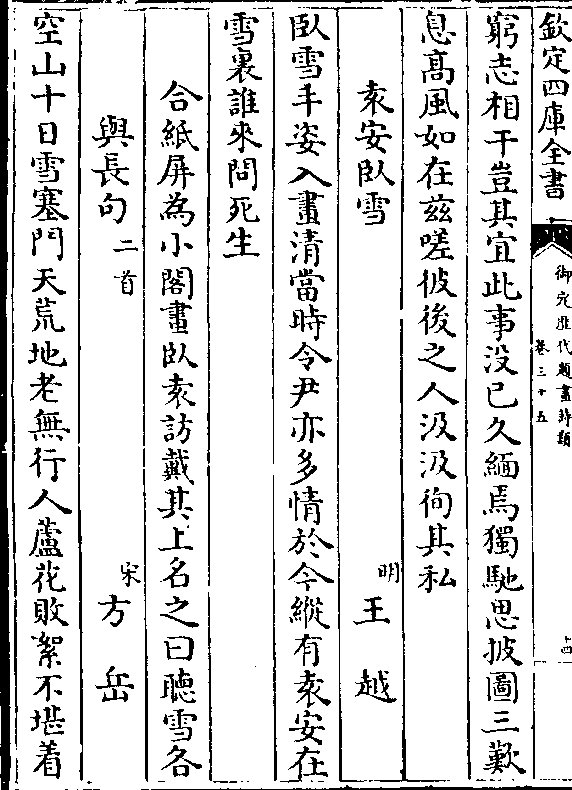 欽定四庫全書
御定歷代題畫詩類
卷三十五
十四
窮志相干豈其宜此事没已久緬焉獨馳思披圖三歎
息高風如在兹嗟彼後之人汲汲徇其私
袁安卧雪
明 王越
卧雪丰姿入畫清當時令尹亦多情於今縱有袁安在
雪裏誰來問死生
合紙屏為小閣畫卧袁訪戴其上名之曰聽雪各
與長句二首
宋 方岳
空山十日雪塞門天荒地老無行人蘆花敗絮不堪着